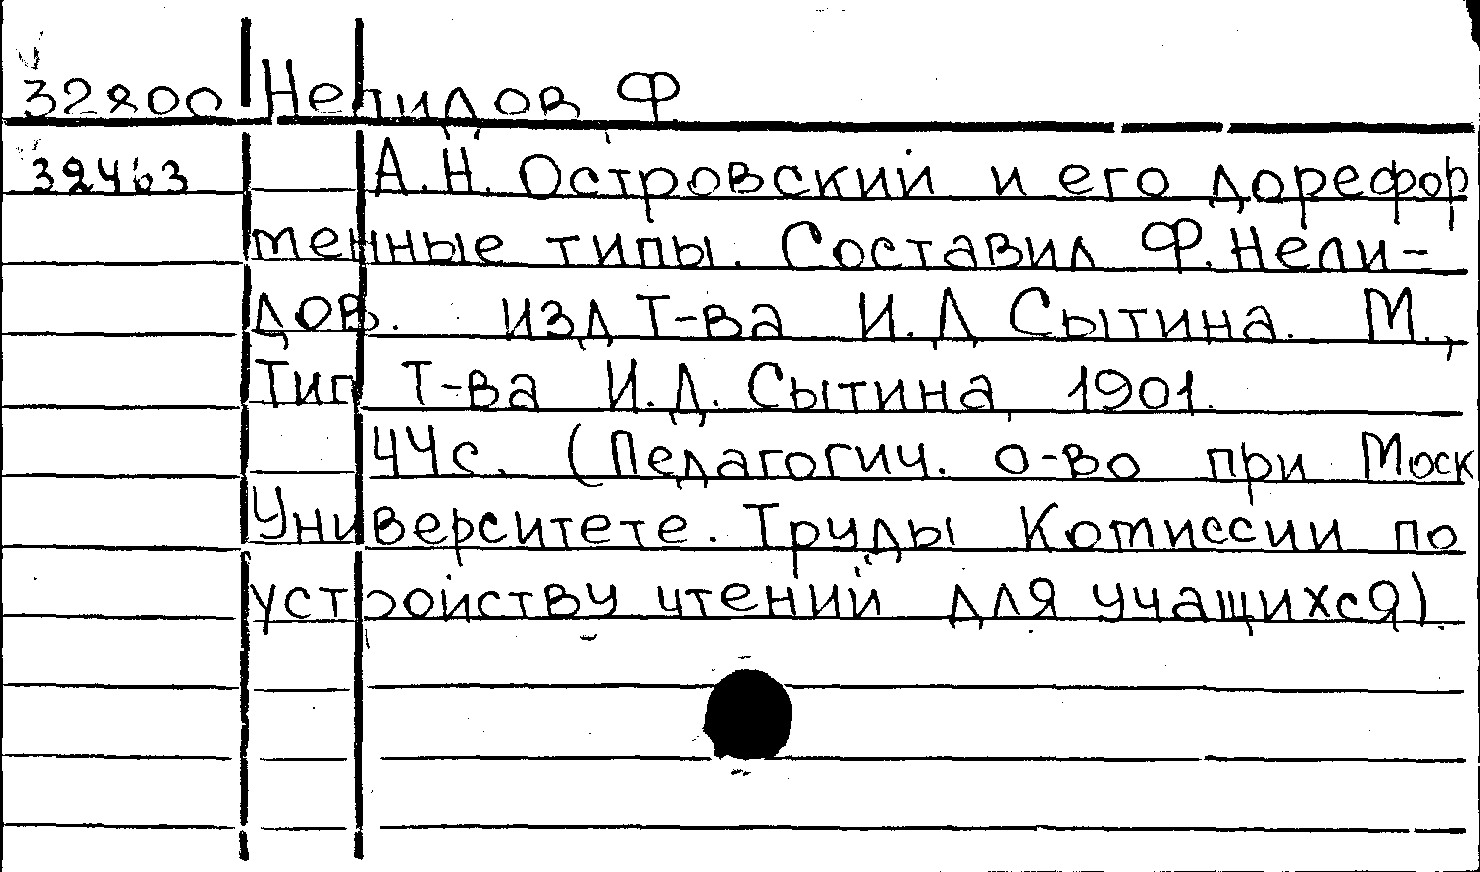 32800 Нелидов Ф
32463 А.Н. Островский и его дорефор
менные типы. Составил Ф. Нели-
дов. изд Т-ва И.Д Сытина. М.,
Тип Т-ва И.Д. Сытина 1901.
44с. (Педагогич. о-во при Моск
Университете. Труды Комиссии по
устройству чтений для учащихся).